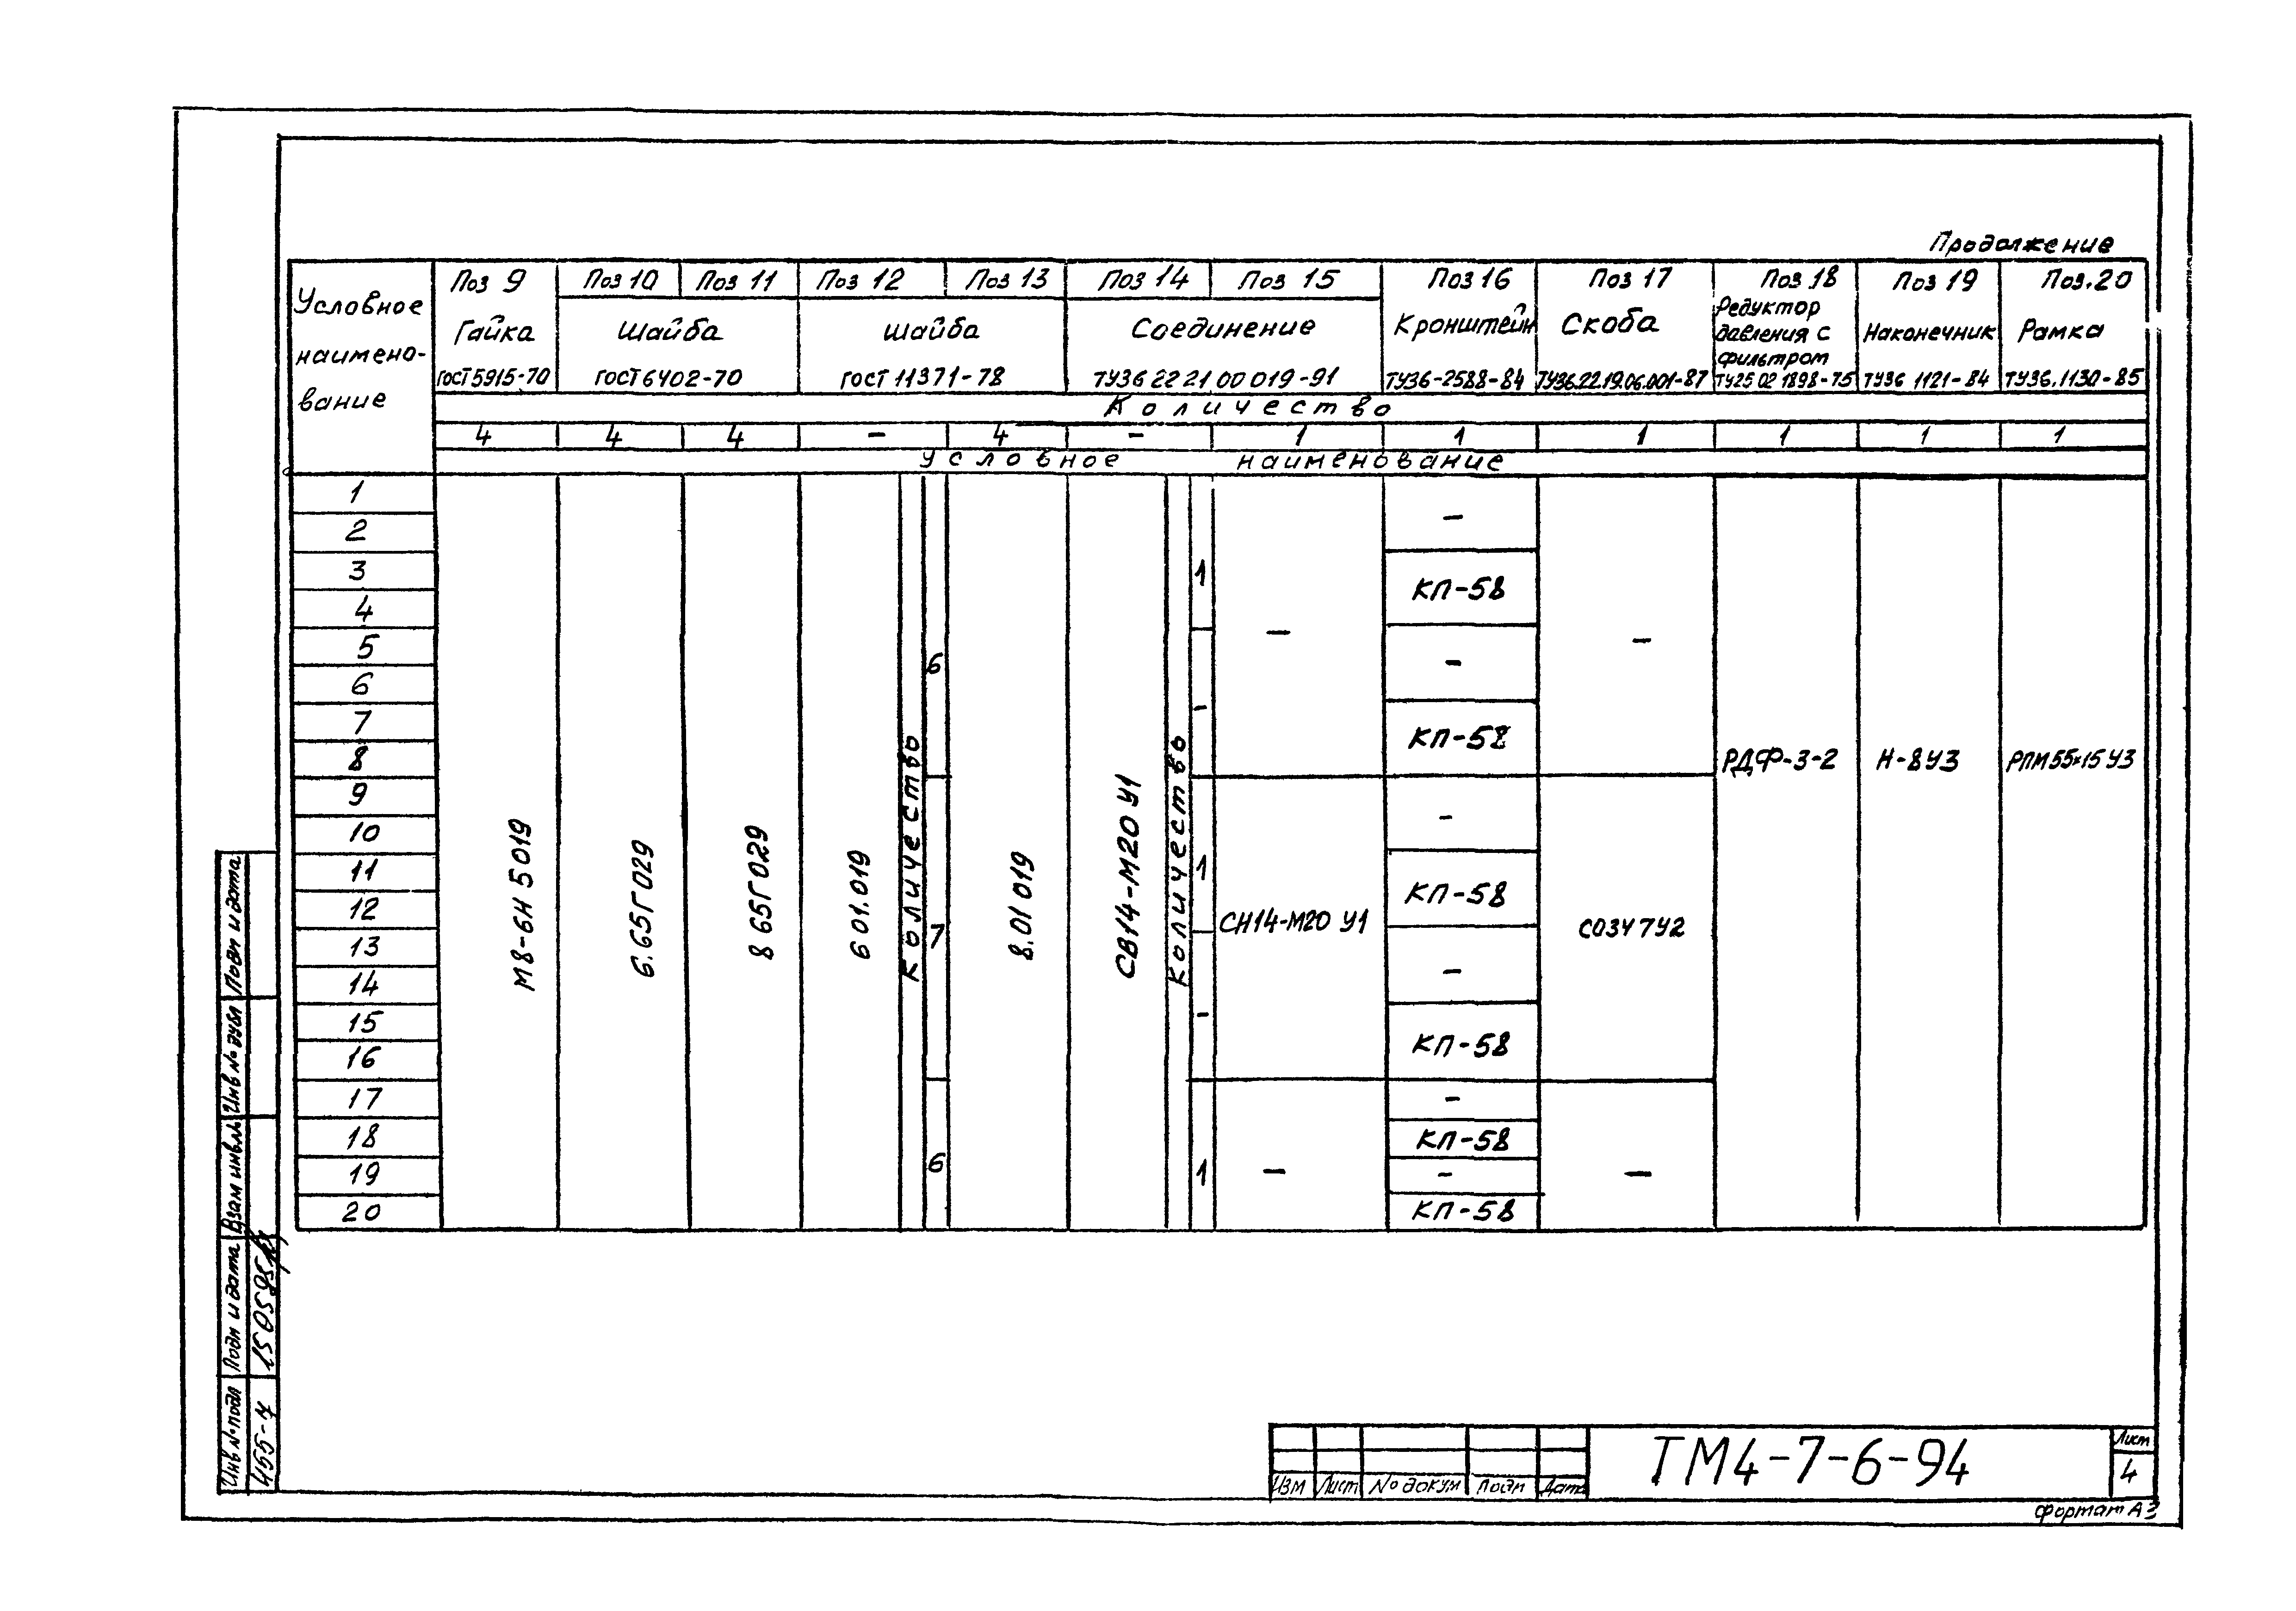 Продолжение
Условное наимено- вание
Поз 9 Поз 10 Поз 11 Поз 12 Поз 13 Поз 14 Поз 15 Поз 16 Поз 17 Поз 18 Поз 19 Поз.20
Гайка Шайба Шайба Соединение Кронштейн Скоба Редуктор давления с фильтром Наконечник Рамка
ГОСТ 5915-70 ГОСТ 6402-70 ГОСТ 11371-78 ТУ36 22 21 00 019-91 ТУ36-2588-84 ТУ36.22.19.06.001-87 ТУ25 02 1898-75 ТУ36 1121-84 ТУ36.1130-85
Количество
4 4 4 - 4 - 1 1 1 1 1 1
Условное наименование
1
2 -
3 1
4 КП-58
5 - -
6 6 -
7 -
8 КП-58 РДФ-3-2 Н-8У3 РПМ55×15У3
9
10 -
11 1
12 КП-58
13 7 СН14-М20 У1 СО3476У2
14 -
15 -
16 КП-58
17 -
18 КП-58
19 6 1 - - -
20 КП-58
М8-6Н 5 019
6.65Г 029
8 65Г 029
6 01.019
Количество
8.01 019
СВ14-М20 У1
Количество
Подп и дата
Инв № дубл
Взам инв №
Подп и дата
15 05 95
Инв № подл
455-4
Изм Лист № докум Подп Дата
ТМ4-7-6-94
Лист
4
формат А3